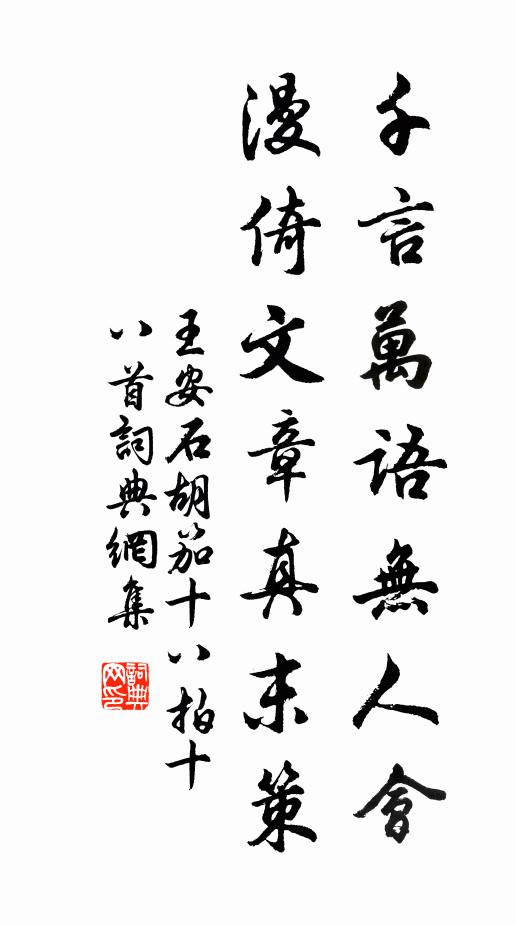 千言萬語無人會
漫倚文章真末策
王安石胡笳十八拍十
八首詞典網集
詞典网印